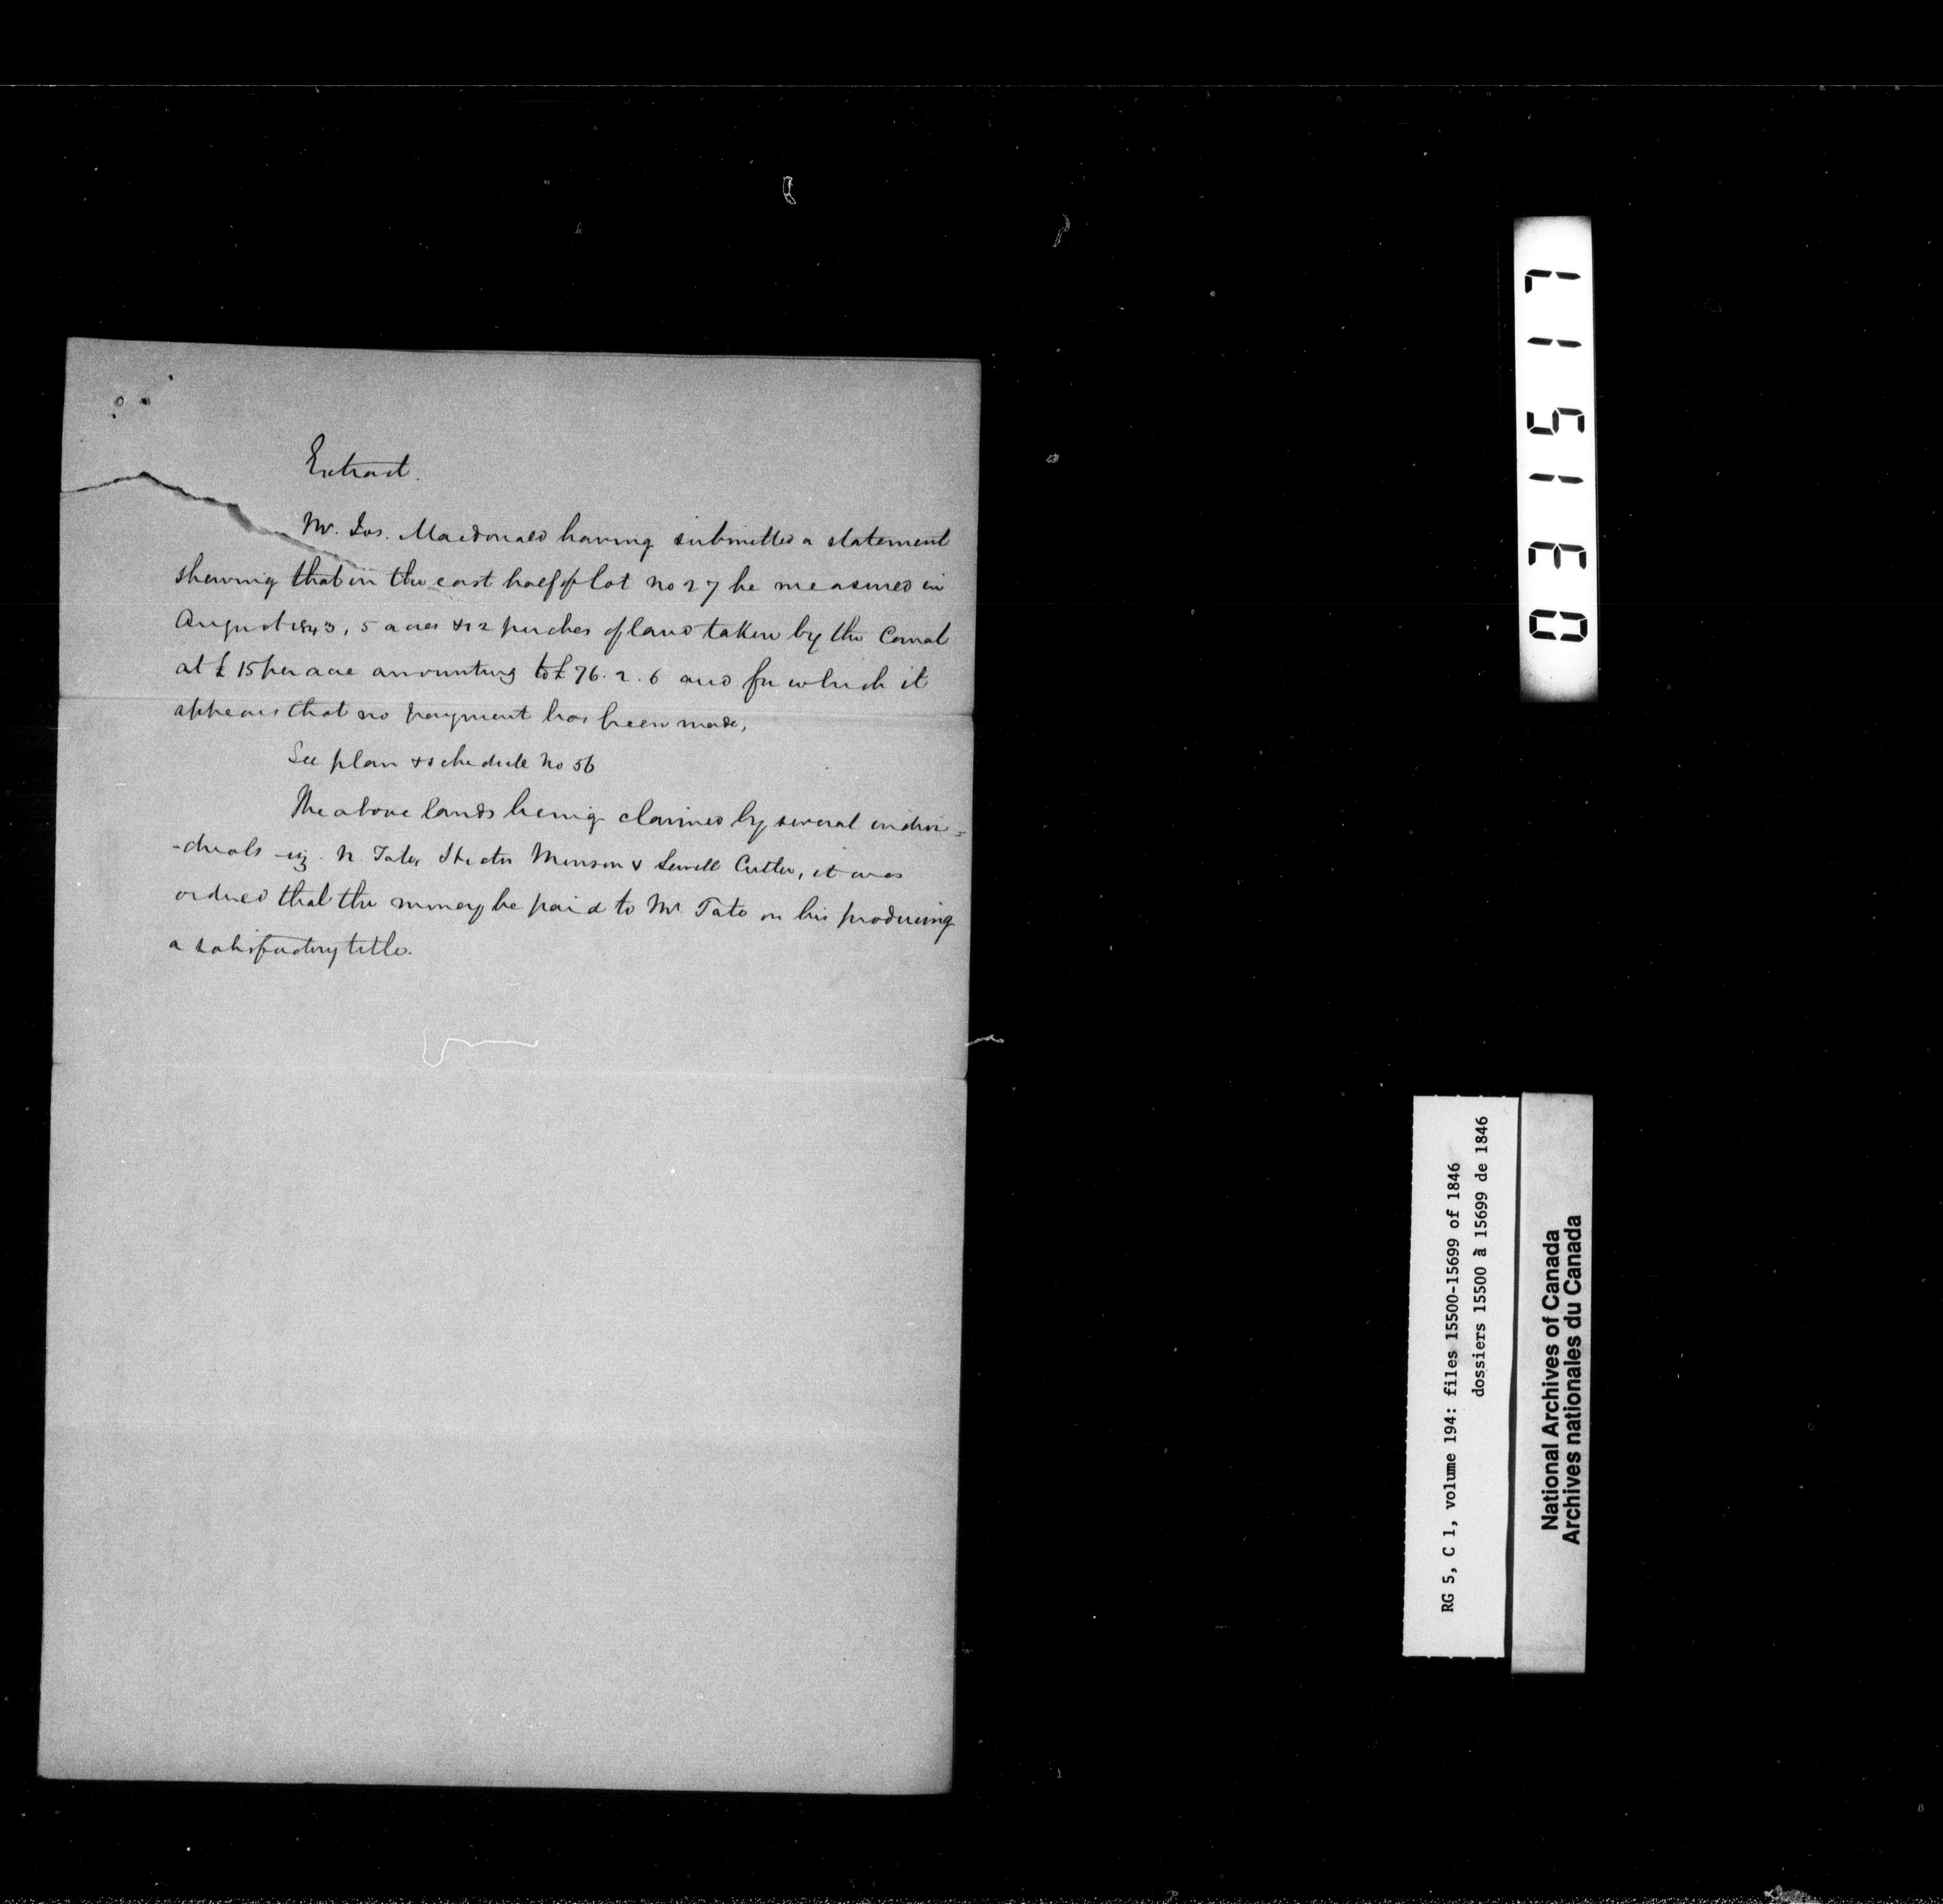 Extract.
Mr. Jas. Macdonald having submitted a statement
shewing that in the east half of lot no 27 he measured in
August 1843, 5 acres & 12 perches of land taken by the Canal
at £ 15 per acre amounting to £ 76. 2. 6 and for which it
appears that no payment has been made,
See plan & schedule No 56
The above lands being claimed by several indivi=
-duals viz. N. Tate, Hector Munson & Sewell Cutler, it was
ordered that the money be paid to Mr Tate on his producing
a satisfactory title.
031517
RG 5, C 1, volume 194: files 15500-15699 of 1846
dossiers 15500 à 15699 de 1846
National Archives of Canada
Archives nationales du Canada